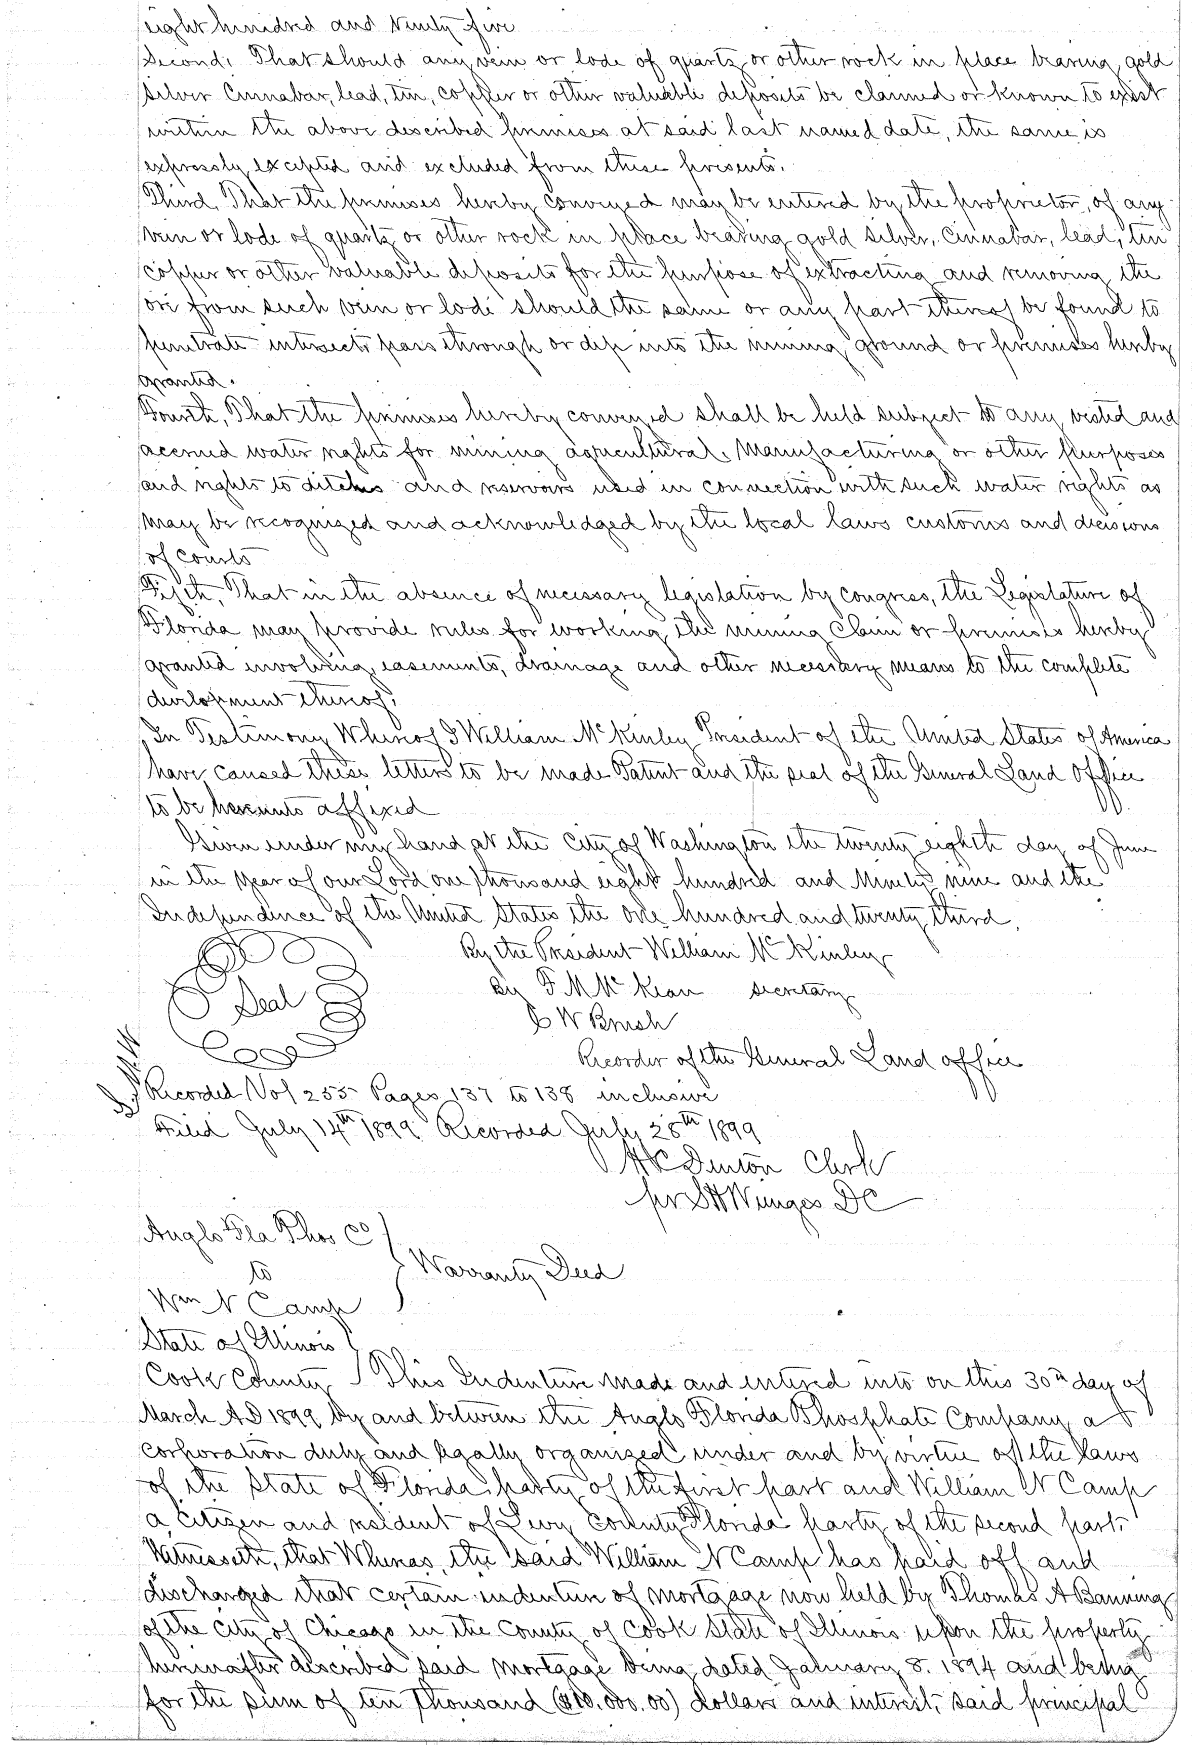 eight hundred and ninety five
Second. That should any vein or lode of quartz or other rock in place bearing gold
silver Cinnabar, lead, tin, copper or other valuable deposits be claimed or known to exist
within the above described premises at said last named date, the same is
expressly excepted and excluded from these presents.
Third. That the premises hereby conveyed may be entered by the proprietor, of any
vein or lode of quartz or other rock in place bearing gold silver, Cinnabar, lead, tin
copper or other valuable deposits for the purpose of extracting and removing the
ore from such vein or lode should the same or any part thereof be found to
penetrate intersect, pass through or dip into the mining ground or premises hereby
granted.
Fourth, That the premises hereby conveyed shall be held subject to any vested and
accrued water rights for mining agricultural, Manufacturing or other purposes
and rights to ditches and reservoirs used in connection with such water rights as
may be recognized and acknowledged by the local laws customs and decisions
of courts
Fifth, That in the absence of necessary legislation by congress, the Legislature of
Florida may provide rules for working the mining Claim or premises hereby
granted involving easements, drainage and other necessary means to the complete
development thereof.
In Testimony Whereof I William McKinley President of the United States of America
have caused these letters to be made Patent and the seal of the General Land Office
to be hereunto affixed
Given under my hand at the City of Washington the twenty eighth day of June
in the year of our Lord one thousand eight hundred and Ninety nine and the
Independence of the United States the one hundred and twenty third.
By the President William McKinley
Seal
By F M McKean secretary
C W Brush
Recorder of the General Land office
Recorded Vol 255 Pages 137 to 138 inclusive
Filed July 14th 1899 Recorded July 28th 1899
Clerk
pr DC
Anglo Fla Phos Co
to
Warranty Deed
Wm N Camp
State of Illinois
Cook County This Indenture made and entered into on this 30th day of
March AD 1899 by and between the Anglo Florida Phosphate Company a
corporation duly and legally organized under and by virtue of the laws
of the State of Florida party of the first part and William N Camp
a citizen and resident of Levy County Florida party of the second part.
Witnesseth, that Whereas, the said William N Camp has paid off and
discharged that certain indenture of mortgage now held by Thomas A Banning
of the City of Chicago in the County of Cook State of Illinois upon the property
hereinafter described said mortgage being dated January 8. 1894 and being
for the sum of ten thousand ($10.000.00) dollars and interest, said principal